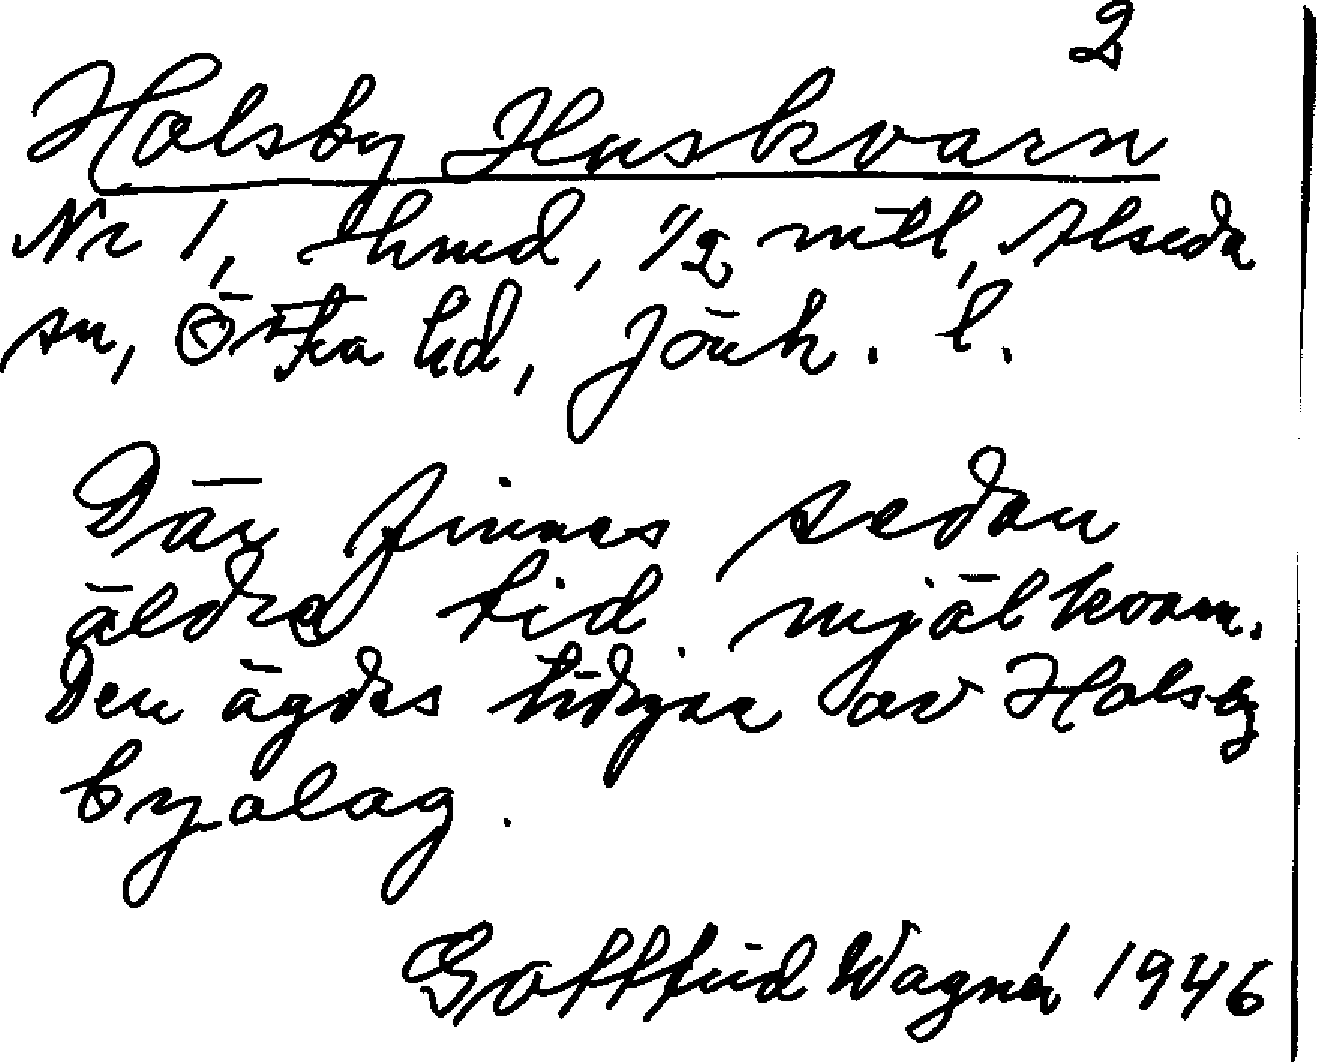 2
Holsby Huskvarn
Nr 1, hmd, 1/2 mtl, Alseda
sn, Östra hd, Jönk. l.
Där finnes sedan
äldre tid mjölkvarn.
Den ägdes tidigare av Holsby
byalag.
Gottfrid Wagnér 1946